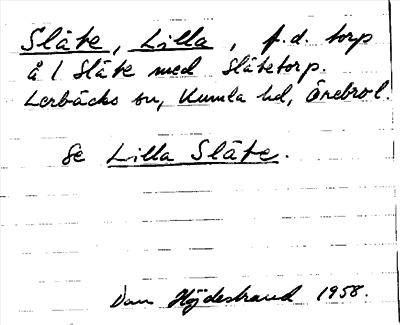 Slåte, Lilla, f.d. torp
å 1 Slåte med Slåtetorp.
Lerbäcks sn, Kumla hd, Örebro l.
Se Lilla Slåte.
Dan Höjdestrand 1958.